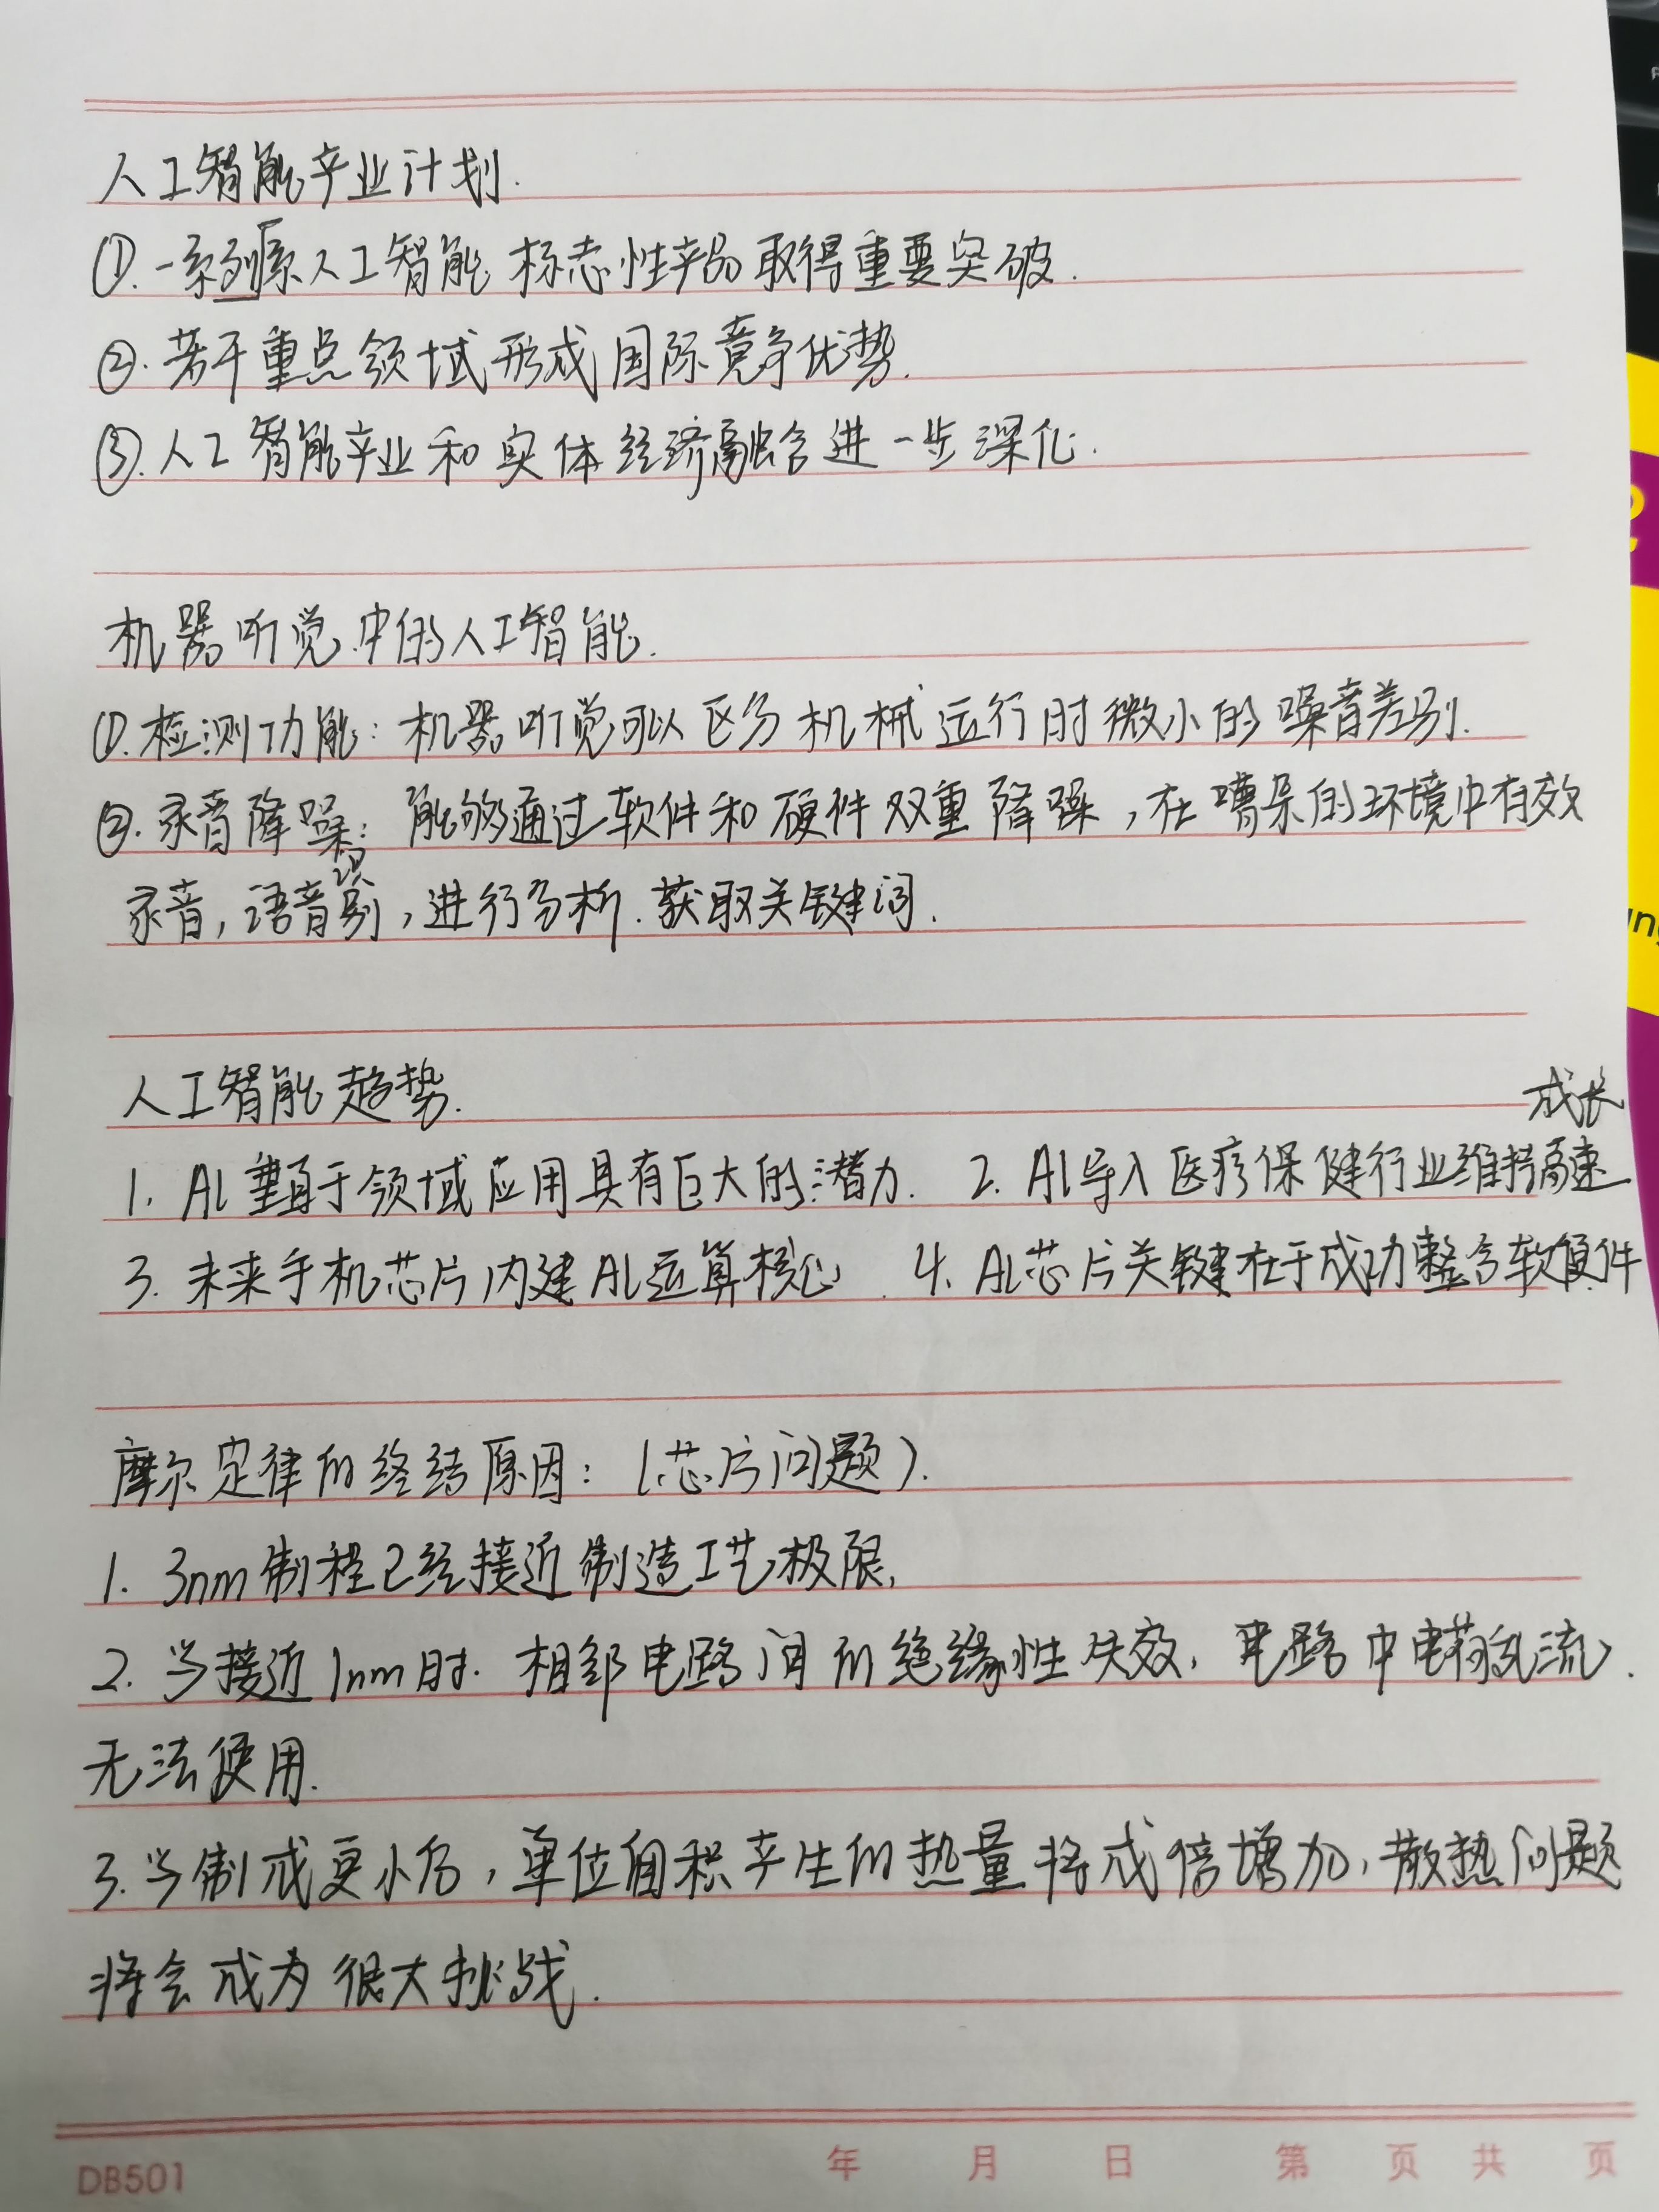 人工智能产业计划.
①.一系列原人工智能标志性产品取得重要突破.
②.若干重点领域形成国际竞争优势.
③.人工智能产业和实体经济融合进一步深化.
机器听觉中的人工智能.
①.检测功能:机器听觉可以区分机械运行时微小的噪音差别.
②.录音降噪:能够通过软件和硬件双重降噪,在嘈杂的环境中有效
录音,语音识别,进行分析.获取关键词.
人工智能趋势.
1. AI垂直于领域应用具有巨大的潜力. 2. AI导入医疗保健行业维持高速成长
3. 未来手机芯片内建AI运算核心. 4. AI芯片关键在于成功整合软硬件
摩尔定律的终结原因:(芯片问题).
1. 3nm制程已经接近制造工艺极限,
2. 当接近1nm时.相邻电路间的绝缘性失效,电路中电荷乱流.
无法使用.
3.当制成更小后,单位面积产生的热量将成倍增加,散热问题
将会成为很大挑战.
DB501 年 月 日 第 页 共 页